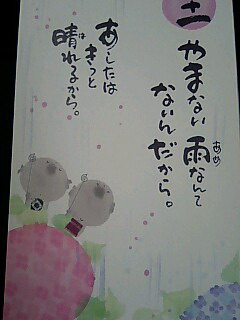 土
やまない雨なんて
ないんだから。
あしたは
きっと
晴れるから。